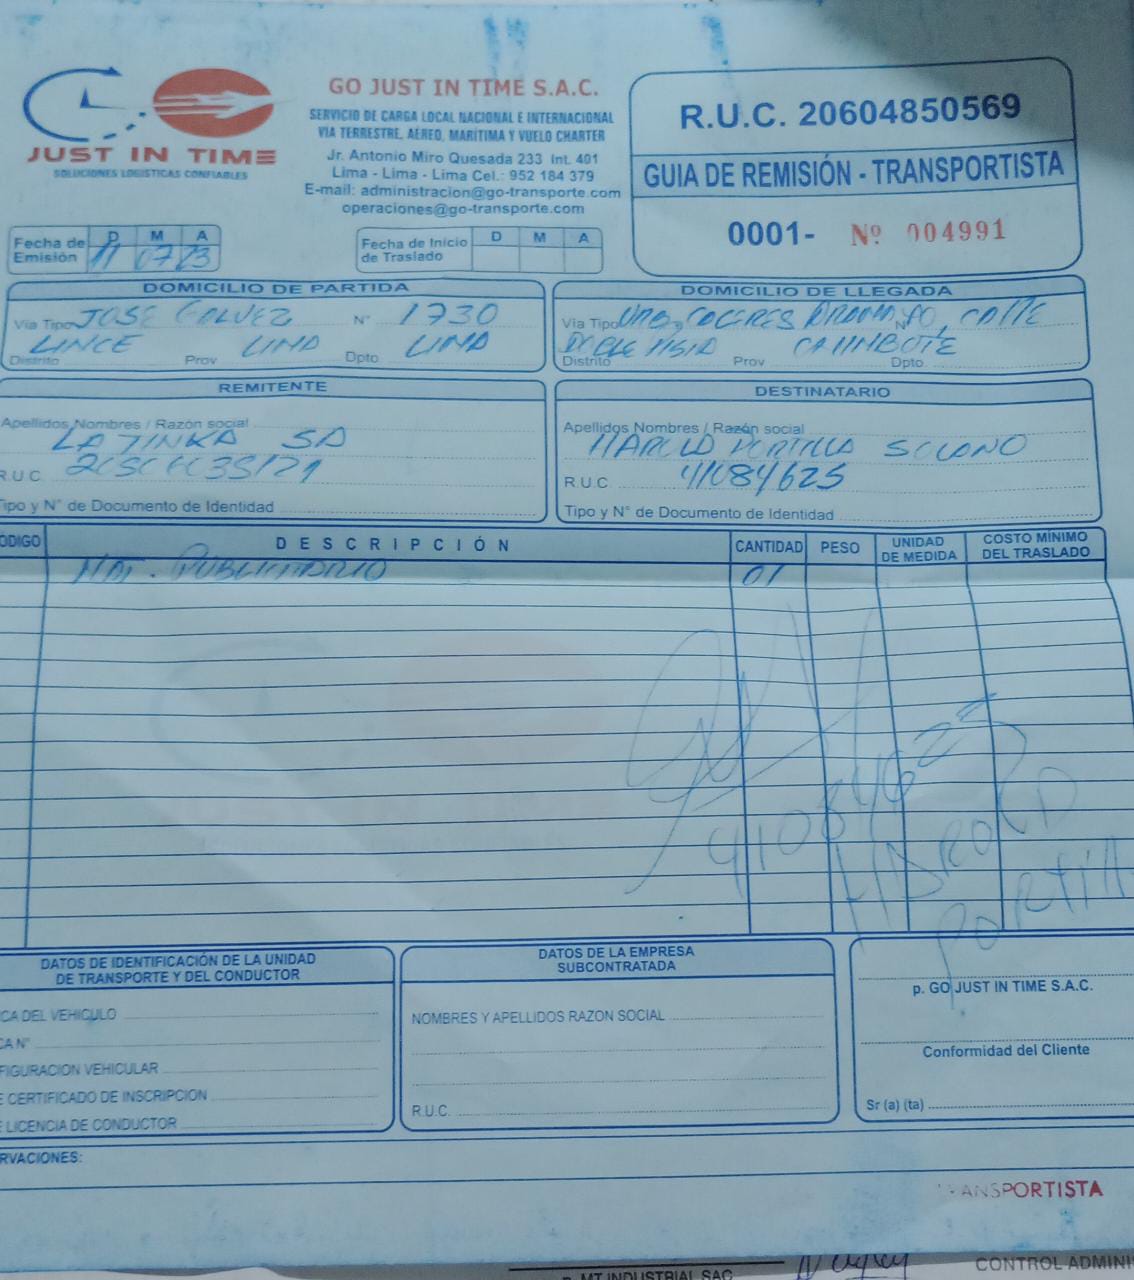 JUST IN TIME
SOLUCIONES LOGISTICAS CONFIABLES
GO JUST IN TIME S.A.C.
SERVICIO DE CARGA LOCAL NACIONAL E INTERNACIONAL
VIA TERRESTRE, AEREO, MARÍTIMA Y VUELO CHARTER
Jr. Antonio Miro Quesada 233 Int. 401
Lima - Lima - Lima Cel.: 952 184 379
E-mail: administracion@go-transporte.com
operaciones@go-transporte.com
R.U.C. 20604850569
GUIA DE REMISIÓN - TRANSPORTISTA
0001- Nº 004991
Fecha de Emisión D M A
11 07 23
Fecha de Inicio de Traslado D M A
DOMICILIO DE PARTIDA
Via Tipo JOSE GALVEZ N° 1730
LINCE LIMA LIMA
Distrito Prov Dpto
DOMICILIO DE LLEGADA
Via Tipo URB. CACERES ARAMAYO, CALLE N°
DOBLE VISIA CAIIMBOTE
Distrito Prov Dpto
REMITENTE
Apellidos Nombres / Razón social
LA TINKA SA
R.U.C.
Tipo y N° de Documento de Identidad
DESTINATARIO
Apellidos Nombres / Razón social
HAROLD PORTILLA SOLANO
R.U.C. 41084625
Tipo y N° de Documento de Identidad
ODIGO DESCRIPCIÓN CANTIDAD PESO UNIDAD DE MEDIDA COSTO MÍNIMO DEL TRASLADO
MAT. PUBLICITARIO 01
41084625
HAROLD
PORTILL
DATOS DE IDENTIFICACIÓN DE LA UNIDAD
DE TRANSPORTE Y DEL CONDUCTOR
CA DEL VEHICULO
CA N°
FIGURACION VEHICULAR
E CERTIFICADO DE INSCRIPCION
E LICENCIA DE CONDUCTOR
DATOS DE LA EMPRESA
SUBCONTRATADA
NOMBRES Y APELLIDOS RAZON SOCIAL
R.U.C.
p. GO JUST IN TIME S.A.C.
Conformidad del Cliente
Sr (a) (ta)
RVACIONES:
TRANSPORTISTA
p. MT INDUSTRIAL SAC
CONTROL ADMINI